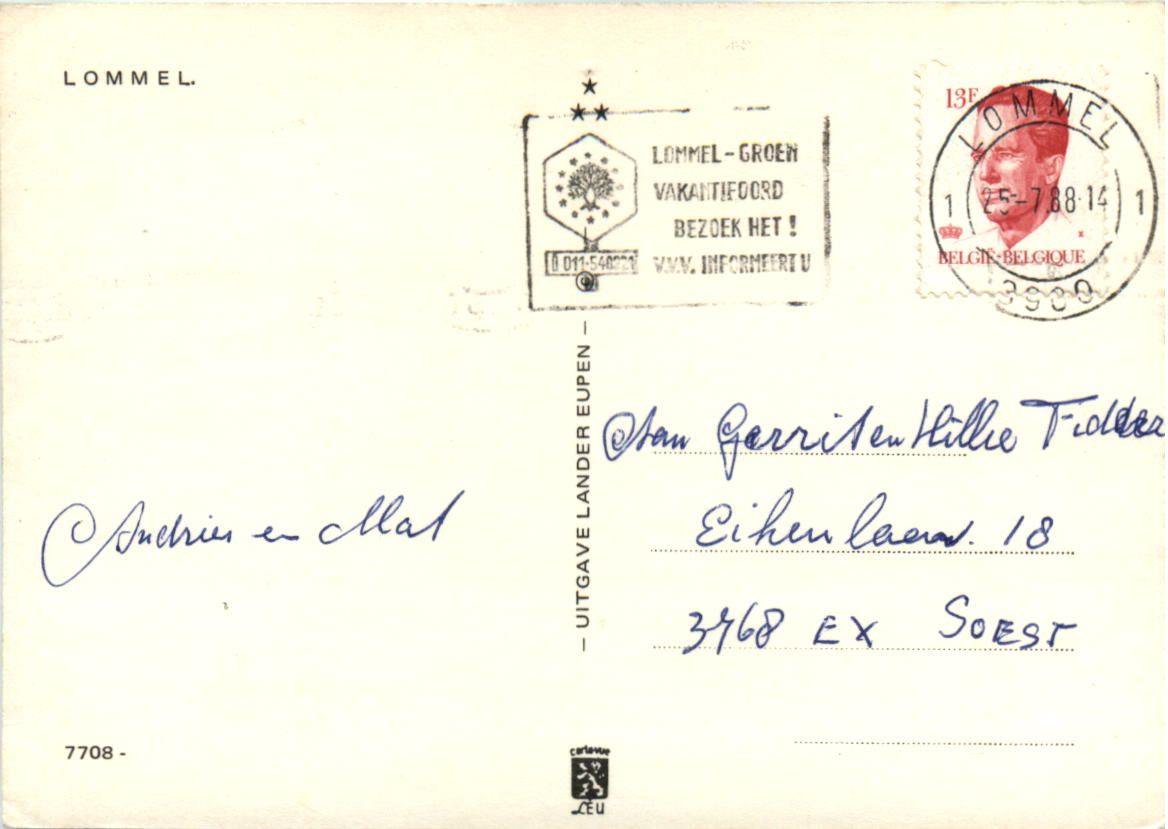 LOMMEL.
LOMMEL-GROEN
VAKANTIEOORD
BEZOEK HET !
V.V.V. INFORMEERT U
i 011-540221
13F
BELGIË-BELGIQUE
LOMMEL
1 25-7.88-14 1
3900
— UITGAVE LANDER EUPEN —
Aan Gerrit en Hillie Fidder
Eikenlaan. 18
3768 EX SOEST
Andries en Mat
7708 -
cartevue
LEU